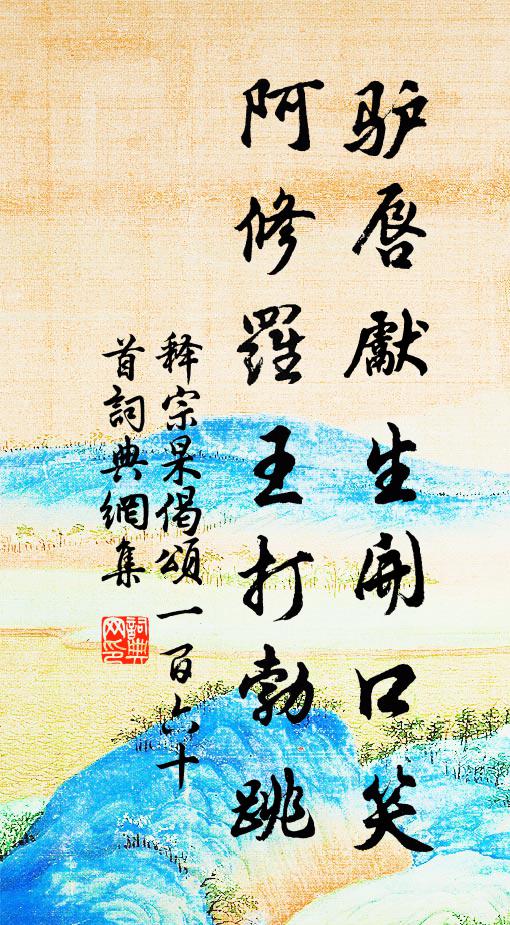 驴唇獻生開口笑
阿修羅王打勃跳
释宗杲偈頌一百六十
首詞典網集
詞典
网印